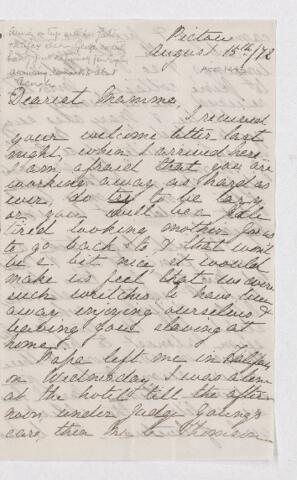 Pictou
August 15th/72
Dearest Mamma
I received
your welcome letter last
night, when I arrived here
I am afraid that you are
working away as hard as
ever, do try to be lazy
or you will be a pale
tired looking mother for us
to go back to & that won't
be a bit nice it would
make us feel that we were
such wretches to have been
away enjoying ourselves &
leaving you slaving at
home.
Papa left me in Halifax
on Wednesday, I was alone
at the hotel till the after
noon under Judge
care, then Mr Thomson